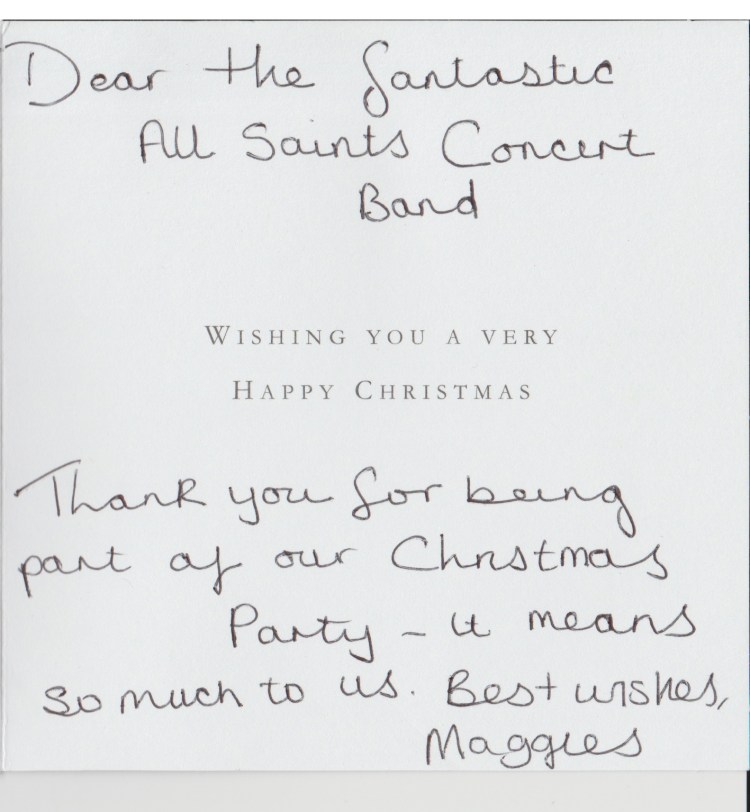 Dear the fantastic
All Saints Concert
Band
WISHING YOU A VERY
HAPPY CHRISTMAS
Thank you for being
part of our Christmas
Party - it means
so much to us. Best wishes,
Maggies